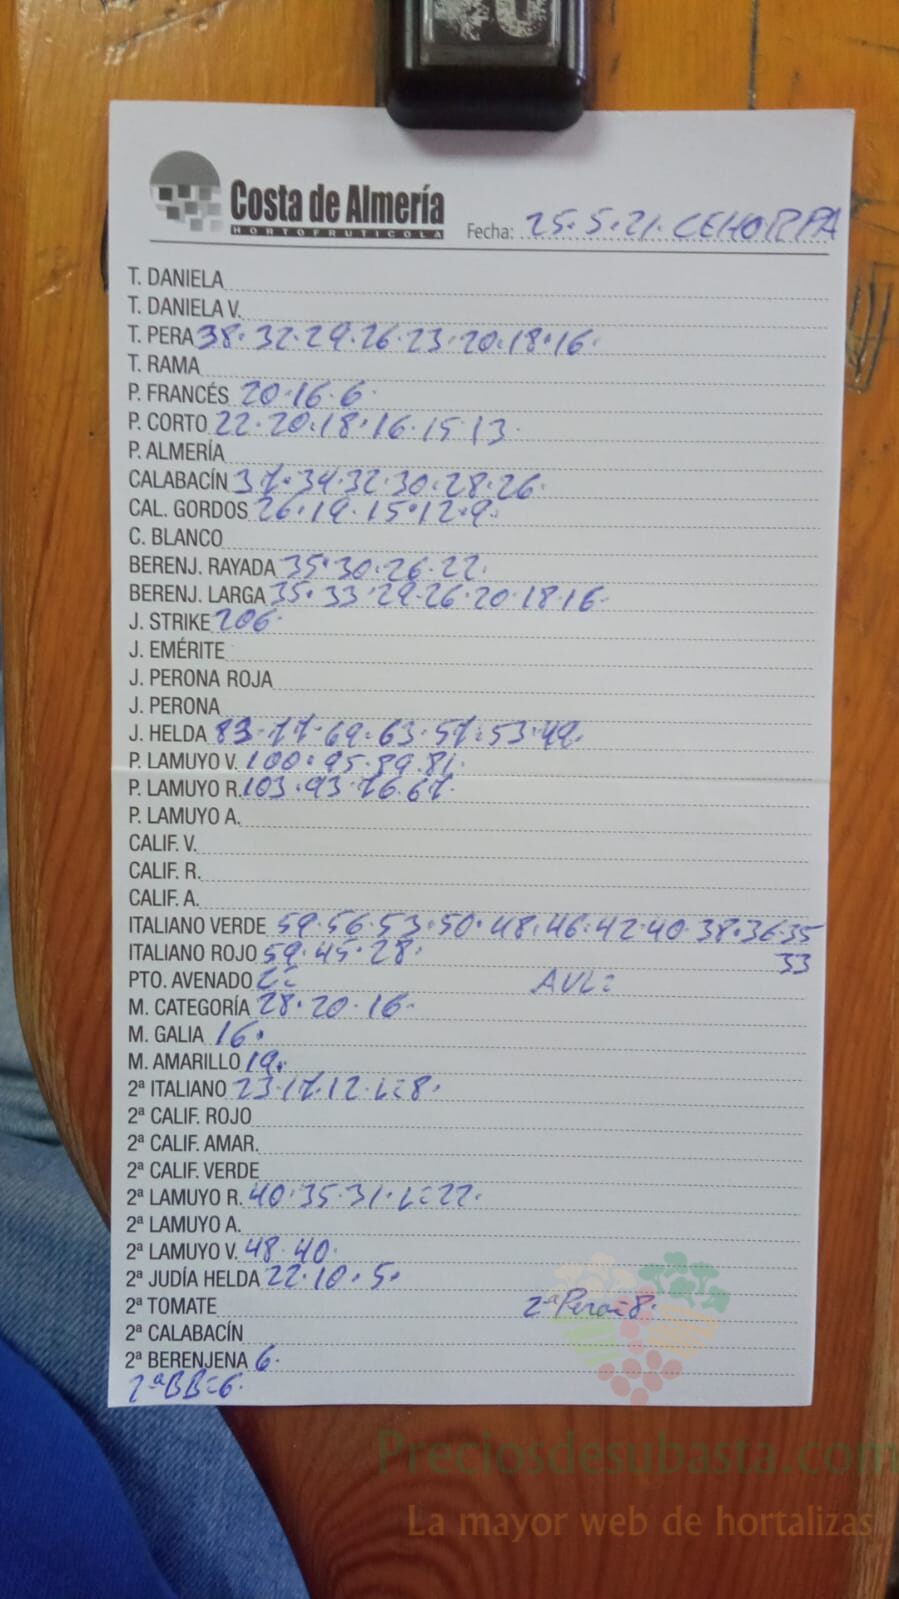 Costa de Almería
HORTOFRUTICOLA
Fecha: 25.5.21. CEHORPA
T. DANIELA
T. DANIELA V.
T. PERA 38.32.29.26.23.20.18.16.
T. RAMA
P. FRANCÉS 20.16.6.
P. CORTO 22.20.18.16.15.13.
P. ALMERÍA
CALABACÍN 37.34.32.30.28.26.
CAL. GORDOS 26.19.15.12.9.
C. BLANCO
BERENJ. RAYADA 35.30.26.22.
BERENJ. LARGA 35.33.29.26.20.18.16.
J. STRIKE 206.
J. EMÉRITE
J. PERONA ROJA
J. PERONA
J. HELDA 83.77.69.63.57.53.49.
P. LAMUYO V. 100.95.89.81.
P. LAMUYO R. 103.93.76.67.
P. LAMUYO A.
CALIF. V.
CALIF. R.
CALIF. A.
ITALIANO VERDE 59.56.53.50.48.46.42.40.38.36.35
33
ITALIANO ROJO 59.45.28.
PTO. AVENADO
M. CATEGORÍA 28.20.16.
M. GALIA 16.
M. AMARILLO 19.
2ª ITALIANO 23.17.12.L=8.
2ª CALIF. ROJO
2ª CALIF. AMAR.
2ª CALIF. VERDE
2ª LAMUYO R. 40.35.31.L=22.
2ª LAMUYO A.
2ª LAMUYO V. 48.40.
2ª JUDÍA HELDA 22.10.5.
2ª TOMATE 2ª Pera=8.
2ª CALABACÍN
2ª BERENJENA 6.
2ª BB=6.
Preciosdesubasta.com
La mayor web de hortalizas